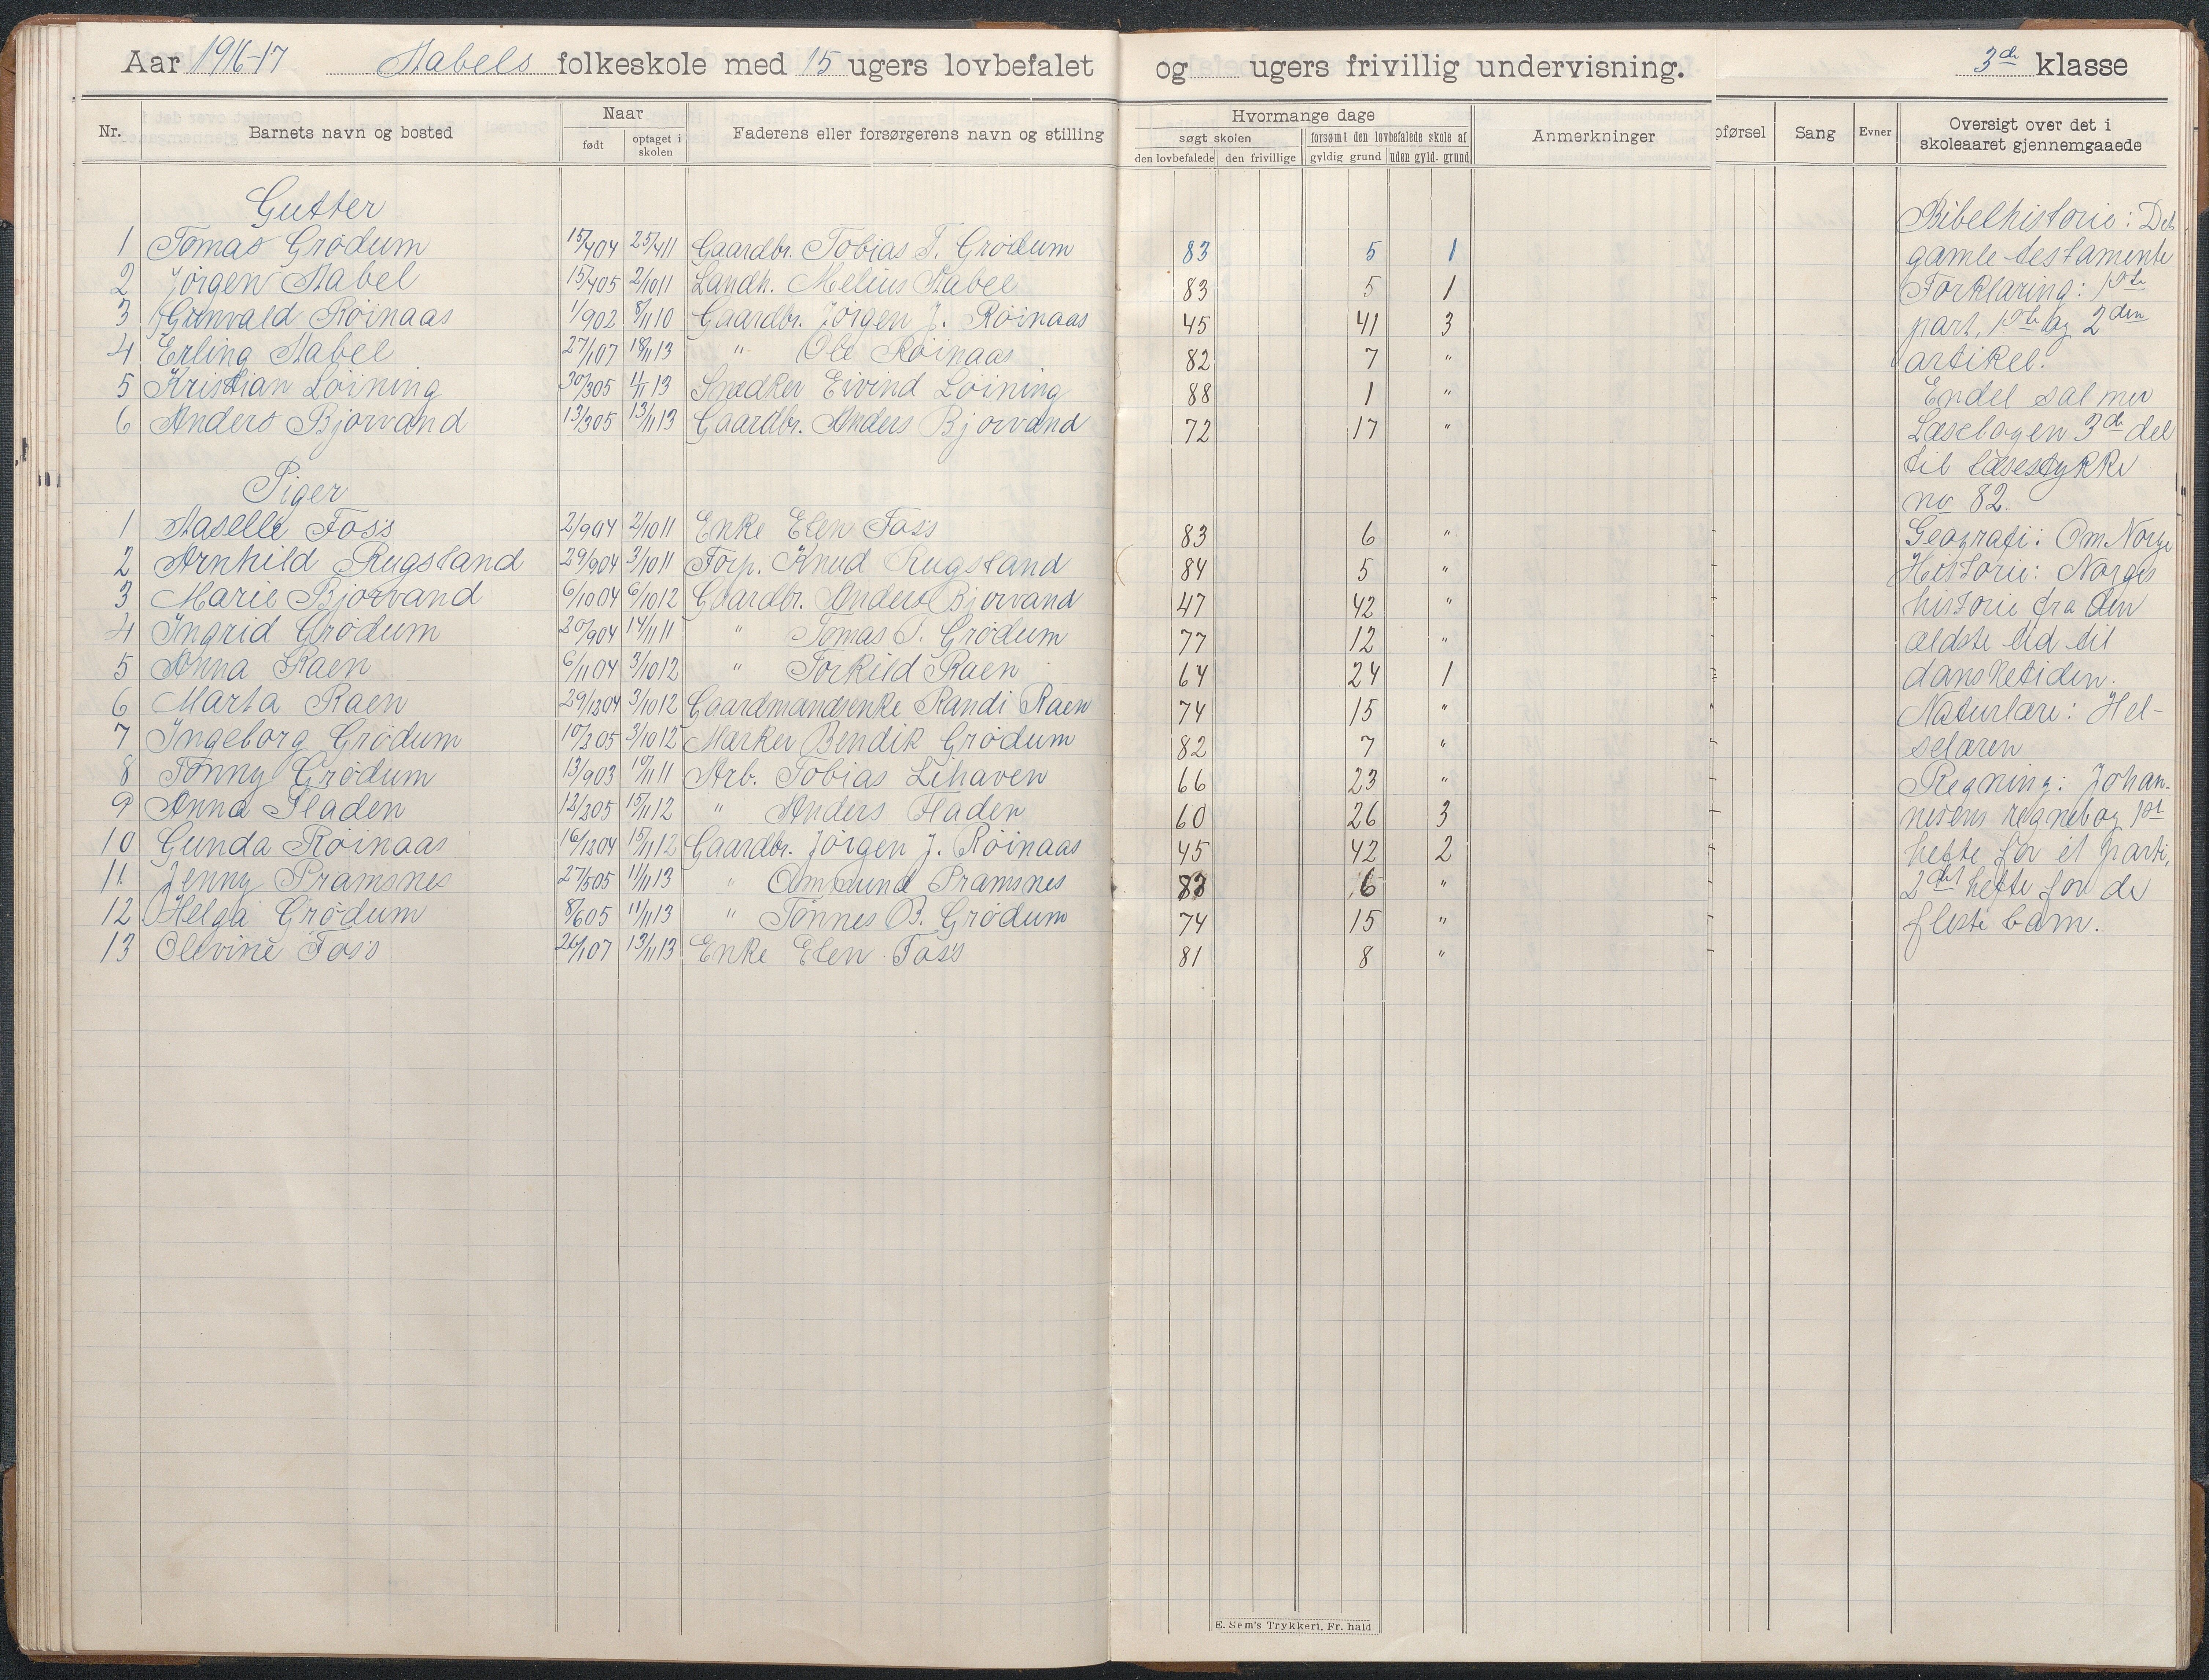 Aar 1916-17 Stabels folkeskole med 15 ugers lovbefalet og ugers frivillig undervisning. 3de klasse
Nr. Barnets navn og bosted Naar født optaget i skolen Faderens eller forsørgerens navn og stilling Hvormange dage søgt skolen den lovbefalede den frivillige forsømt den lovbefalede skole af gyldig grund uden gyld. grund Anmerkninger pførsel Sang Evner Oversigt over det i skoleaaret gjennemgaaede
Gutter
1 Tomas Grødum 15/4 04 25/4 11 Gaardbr. Tobias T. Grødum 83 5 1
2 Jørgen Stabel 15/4 05 2/10 11 Landh. Melius Stabel 83 5 1
3 Gunvald Røinaas 1/9 02 8/11 10 Gaardbr. Jørgen J. Røinaas 45 41 3
4 Erling Stabel 27/1 07 18/11 13 " Ole Røinaas 82 7 "
5 Kristian Løining 30/3 05 11/11 13 Snedker Eivind Løining 88 1 "
6 Anders Bjorvand 13/3 05 13/11 13 Gaardbr. Anders Bjorvand 72 17 "
Piger
1 Aaselle Foss 2/9 04 2/10 11 Enke Elen Foss 83 6 "
2 Arnhild Rugsland 29/9 04 3/10 11 Forp. Knud Rugsland 84 5 "
3 Marie Bjorvand 6/10 04 6/10 12 Gaardbr. Anders Bjorvand 47 42 "
4 Ingrid Grødum 20/9 04 14/11 11 " Tomas T. Grødum 77 12 "
5 Anna Raen 6/11 04 3/10 12 " Torkild Raen 64 24 1
6 Marta Raen 29/12 04 3/10 12 Gaardmandsenke Randi Raen 74 15 "
7 Ingeborg Grødum 10/2 05 3/10 12 Mærker Bendik Grødum 82 7 "
8 Tønny Grødum 13/9 03 10/11 11 Arb. Tobias Lihaven 66 23 "
9 Anna Fladen 12/2 05 15/11 12 " Anders Fladen 60 26 3
10 Gunda Røinaas 16/12 04 15/11 12 Gaardbr. Jørgen J. Røinaas 45 42 2
11 Jenny Pramsnes 27/5 05 11/11 13 " Ommund Pramsnes 83 6 "
12 Helga Grødum 8/6 05 11/11 13 " Tønnes B. Grødum 74 15 "
13 Olevine Foss 26/1 07 13/11 13 Enke Elen Foss 81 8 "
Bibelhistorie: Det
gamle testamente
Forklaring: 1ste
part, 1ste og 2den
artikel.
Endel salmer
Læsebogen 3de del
til læsestykke
no 82.
Geografi: Om Norge
Historie: Norges
historie fra den
ældste tid til
dansketiden.
Naturlære: Hel-
selæren
Regning: Johan-
nesens regnebog 1st
hefte for et parti,
2det hefte for de
fleste barn.
E. Sem's Trykkeri, Fr. hald.